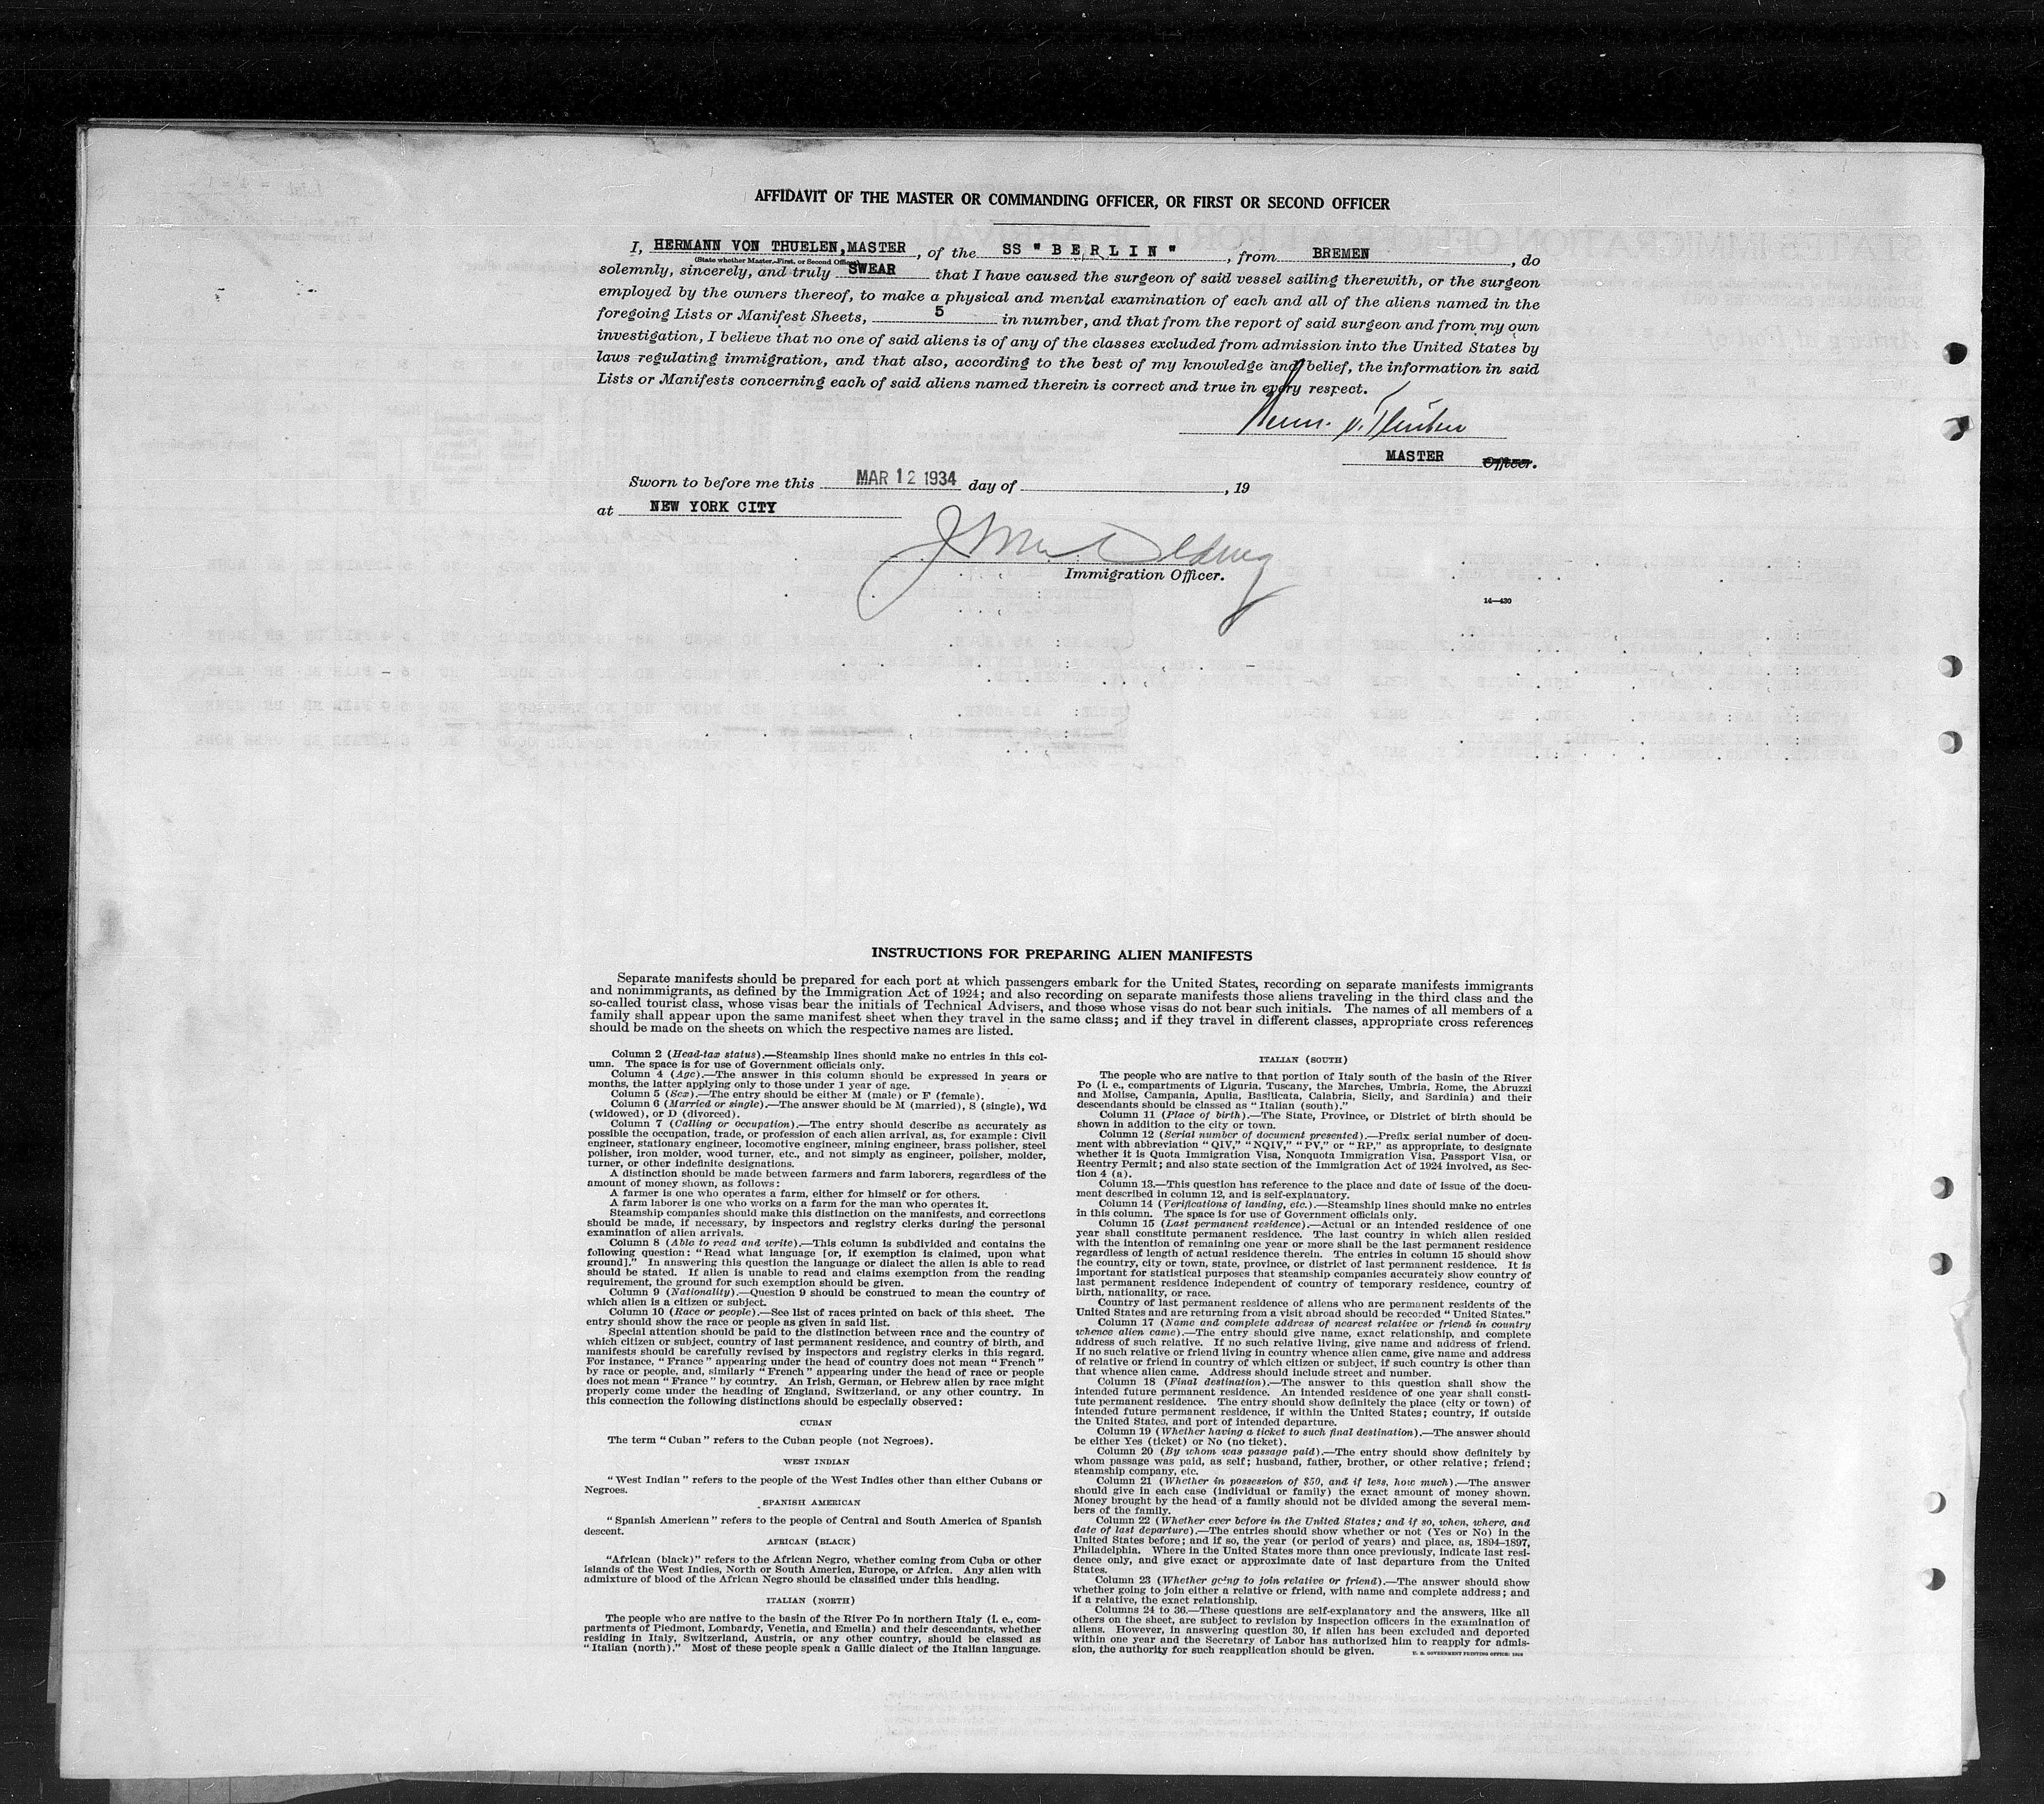 AFFIDAVIT OF THE MASTER OR COMMANDING OFFICER, OR FIRST OR SECOND OFFICER
I, HERMANN VON THUELEN, MASTER, of the SS " B E R L I N ", from BREMEN, do
(State whether Master, First, or Second Officer)
solemnly, sincerely, and truly SWEAR that I have caused the surgeon of said vessel sailing therewith, or the surgeon
employed by the owners thereof, to make a physical and mental examination of each and all of the aliens named in the
foregoing Lists or Manifest Sheets, 5 in number, and that from the report of said surgeon and from my own
investigation, I believe that no one of said aliens is of any of the classes excluded from admission into the United States by
laws regulating immigration, and that also, according to the best of my knowledge and belief, the information in said
Lists or Manifests concerning each of said aliens named therein is correct and true in every respect.
MASTER Officer.
Sworn to before me this MAR 12 1934 day of , 19
at NEW YORK CITY
Immigration Officer.
14—430
INSTRUCTIONS FOR PREPARING ALIEN MANIFESTS
Separate manifests should be prepared for each port at which passengers embark for the United States, recording on separate manifests immigrants
and nonimmigrants, as defined by the Immigration Act of 1924; and also recording on separate manifests those aliens traveling in the third class and the
so-called tourist class, whose visas bear the initials of Technical Advisers, and those whose visas do not bear such initials. The names of all members of a
family shall appear upon the same manifest sheet when they travel in the same class; and if they travel in different classes, appropriate cross references
should be made on the sheets on which the respective names are listed.
Column 2 (Head-tax status).—Steamship lines should make no entries in this col-
umn. The space is for use of Government officials only.
Column 4 (Age).—The answer in this column should be expressed in years or
months, the latter applying only to those under 1 year of age.
Column 5 (Sex).—The entry should be either M (male) or F (female).
Column 6 (Married or single).—The answer should be M (married), S (single), Wd
(widowed), or D (divorced).
Column 7 (Calling or occupation).—The entry should describe as accurately as
possible the occupation, trade, or profession of each alien arrival, as, for example: Civil
engineer, stationary engineer, locomotive engineer, mining engineer, brass polisher, steel
polisher, iron molder, wood turner, etc., and not simply as engineer, polisher, molder,
turner, or other indefinite designations.
A distinction should be made between farmers and farm laborers, regardless of the
amount of money shown, as follows:
A farmer is one who operates a farm, either for himself or for others.
A farm laborer is one who works on a farm for the man who operates it.
Steamship companies should make this distinction on the manifests, and corrections
should be made, if necessary, by inspectors and registry clerks during the personal
examination of alien arrivals.
Column 8 (Able to read and write).—This column is subdivided and contains the
following question: "Read what language [or, if exemption is claimed, upon what
ground]." In answering this question the language or dialect the alien is able to read
should be stated. If alien is unable to read and claims exemption from the reading
requirement, the ground for such exemption should be given.
Column 9 (Nationality).—Question 9 should be construed to mean the country of
which alien is a citizen or subject.
Column 10 (Race or people).—See list of races printed on back of this sheet. The
entry should show the race or people as given in said list.
Special attention should be paid to the distinction between race and the country of
which citizen or subject, country of last permanent residence, and country of birth, and
manifests should be carefully revised by inspectors and registry clerks in this regard.
For instance, "France" appearing under the head of country does not mean "French"
by race or people, and, similarly "French" appearing under the head of race or people
does not mean "France" by country. An Irish, German, or Hebrew alien by race might
properly come under the heading of England, Switzerland, or any other country. In
this connection the following distinctions should be especially observed:
CUBAN
The term "Cuban" refers to the Cuban people (not Negroes).
WEST INDIAN
"West Indian" refers to the people of the West Indies other than either Cubans or
Negroes.
SPANISH AMERICAN
"Spanish American" refers to the people of Central and South America of Spanish
descent.
AFRICAN (BLACK)
"African (black)" refers to the African Negro, whether coming from Cuba or other
islands of the West Indies, North or South America, Europe, or Africa. Any alien with
admixture of blood of the African Negro should be classified under this heading.
ITALIAN (NORTH)
The people who are native to the basin of the River Po in northern Italy (i. e., com-
partments of Piedmont, Lombardy, Venetia, and Emelia) and their descendants, whether
residing in Italy, Switzerland, Austria, or any other country, should be classed as
"Italian (north)." Most of these people speak a Gallic dialect of the Italian language.
ITALIAN (SOUTH)
The people who are native to that portion of Italy south of the basin of the River
Po (i. e., compartments of Liguria, Tuscany, the Marches, Umbria, Rome, the Abruzzi
and Molise, Campania, Apulia, Basilicata, Calabria, Sicily, and Sardinia) and their
descendants should be classed as "Italian (south)."
Column 11 (Place of birth).—The State, Province, or District of birth should be
shown in addition to the city or town.
Column 12 (Serial number of document presented).—Prefix serial number of docu-
ment with abbreviation "QIV," "NQIV," "PV," or "RP," as appropriate, to designate
whether it is Quota Immigration Visa, Nonquota Immigration Visa, Passport Visa, or
Reentry Permit; and also state section of the Immigration Act of 1924 involved, as Sec-
tion 4 (a).
Column 13.—This question has reference to the place and date of issue of the docu-
ment described in column 12, and is self-explanatory.
Column 14 (Verifications of landing, etc.).—Steamship lines should make no entries
in this column. The space is for use of Government officials only.
Column 15 (Last permanent residence).—Actual or an intended residence of one
year shall constitute permanent residence. The last country in which alien resided
with the intention of remaining one year or more shall be the last permanent residence
regardless of length of actual residence therein. The entries in column 15 should show
the country, city or town, state, province, or district of last permanent residence. It is
important for statistical purposes that steamship companies accurately show country of
last permanent residence independent of country of temporary residence, country of
birth, nationality, or race.
Country of last permanent residence of aliens who are permanent residents of the
United States and are returning from a visit abroad should be recorded "United States."
Column 17 (Name and complete address of nearest relative or friend in country
whence alien came).—The entry should give name, exact relationship, and complete
address of such relative. If no such relative living, give name and address of friend.
If no such relative or friend living in country whence alien came, give name and address
of relative or friend in country of which citizen or subject, if such country is other than
that whence alien came. Address should include street and number.
Column 18 (Final destination).—The answer to this question shall show the
intended future permanent residence. An intended residence of one year shall consti-
tute permanent residence. The entry should show definitely the place (city or town) of
intended future permanent residence, if within the United States; country, if outside
the United States, and port of intended departure.
Column 19 (Whether having a ticket to such final destination).—The answer should
be either Yes (ticket) or No (no ticket).
Column 20 (By whom was passage paid).—The entry should show definitely by
whom passage was paid, as self; husband, father, brother, or other relative; friend;
steamship company, etc.
Column 21 (Whether in possession of $50, and if less, how much).—The answer
should give in each case (individual or family) the exact amount of money shown.
Money brought by the head of a family should not be divided among the several mem-
bers of the family.
Column 22 (Whether ever before in the United States; and if so, when, where, and
date of last departure).—The entries should show whether or not (Yes or No) in the
United States before; and if so, the year (or period of years) and place, as, 1894–1897,
Philadelphia. Where in the United States more than once previously, indicate last resi-
dence only, and give exact or approximate date of last departure from the United
States.
Column 23 (Whether going to join relative or friend).—The answer should show
whether going to join either a relative or friend, with name and complete address; and
if a relative, the exact relationship.
Columns 24 to 36.—These questions are self-explanatory and the answers, like all
others on the sheet, are subject to revision by inspection officers in the examination of
aliens. However, in answering question 30, if alien has been excluded and deported
within one year and the Secretary of Labor has authorized him to reapply for admis-
sion, the authority for such reapplication should be given.
U. S. GOVERNMENT PRINTING OFFICE: